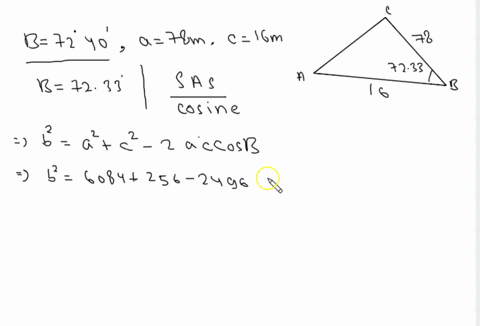 B = 72° 40', a = 78m, c = 16m
B = 72.33° | SAS
cosine
=) b² = a² + c² - 2 a c cos B
=) b² = 6084 + 256 - 2496
C
78
72.33
A
B
16